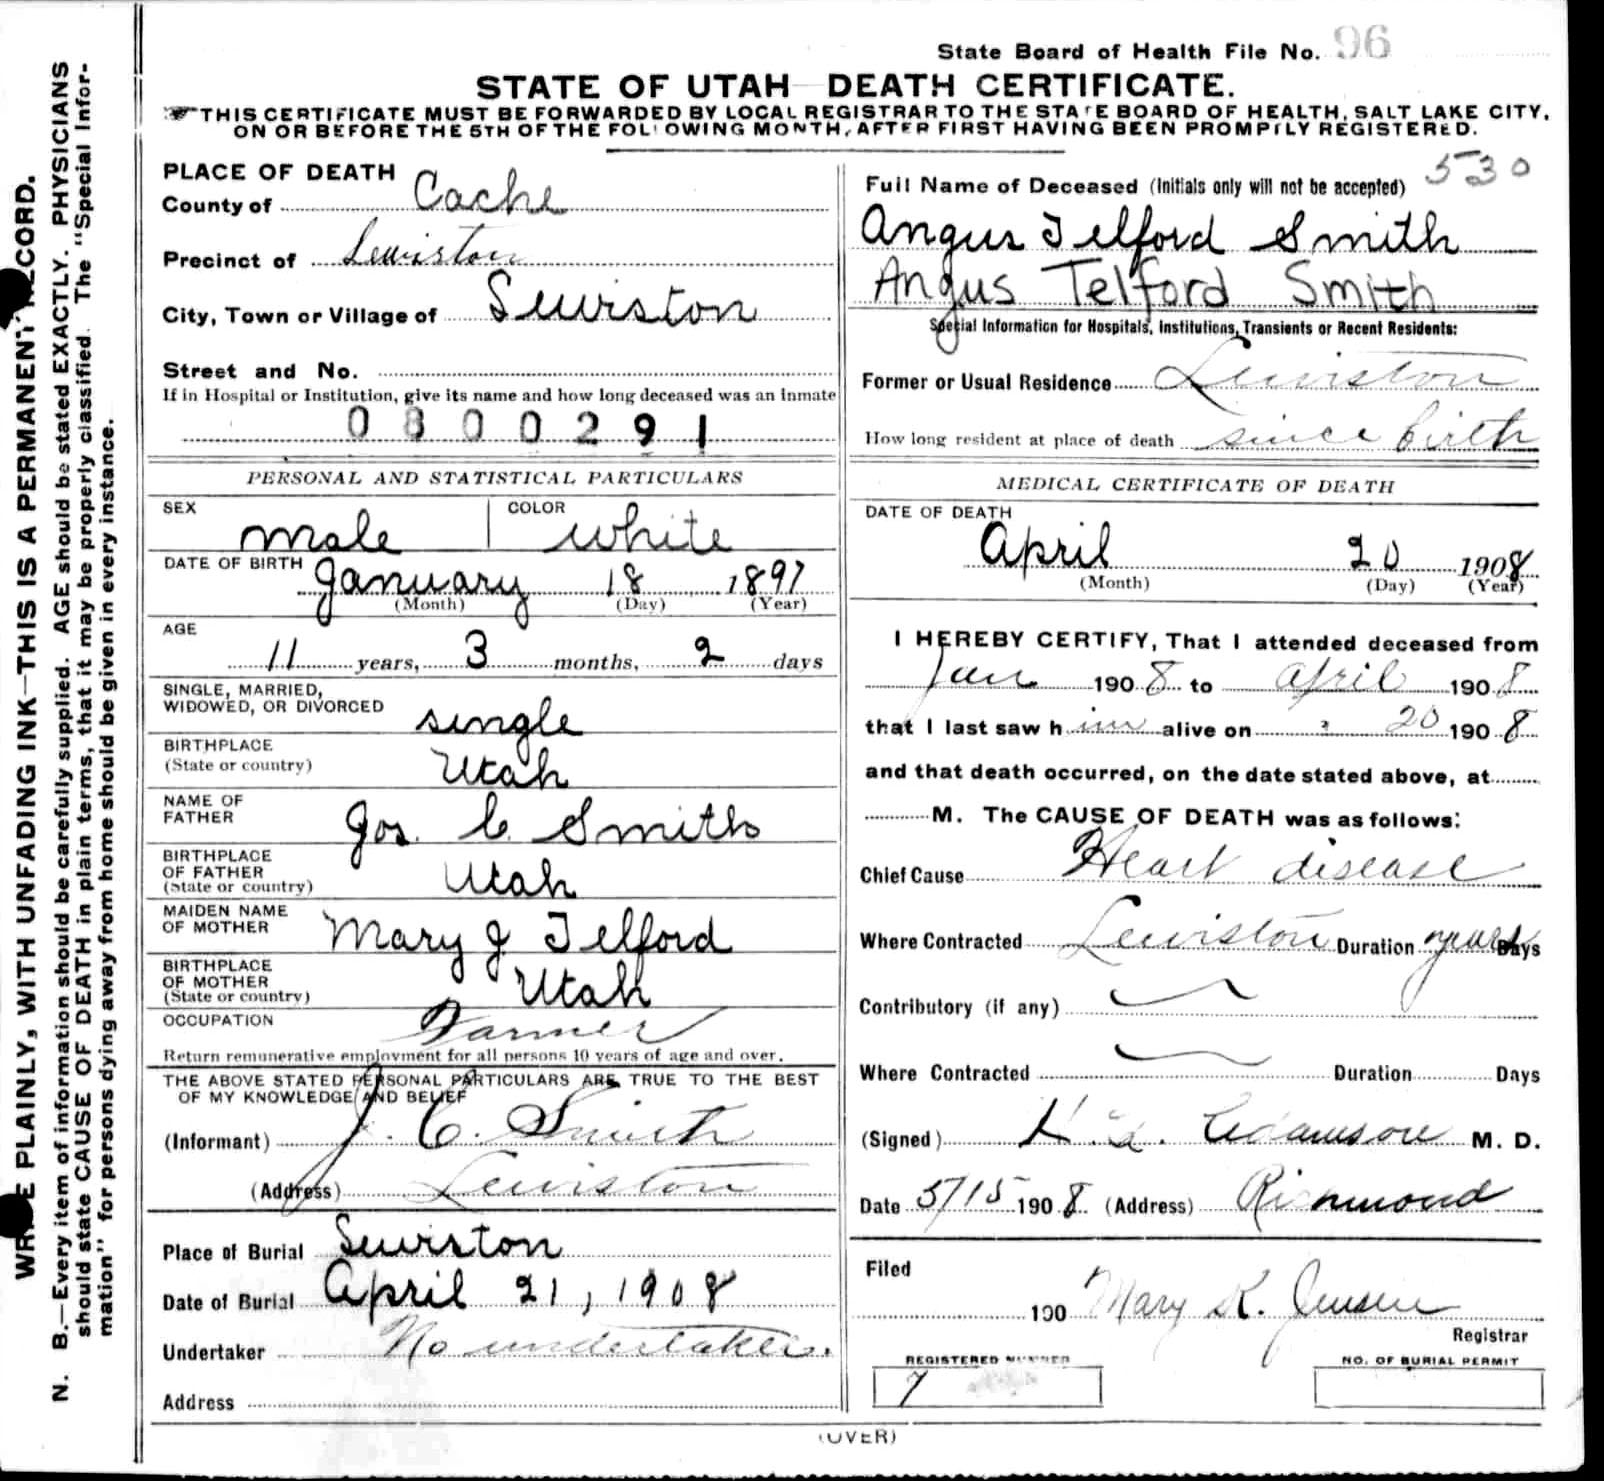 WRITE PLAINLY, WITH UNFADING INK—THIS IS A PERMANENT RECORD.
N. B.—Every item of information should be carefully supplied. AGE should be stated EXACTLY. PHYSICIANS
should state CAUSE OF DEATH in plain terms, that it may be properly classified. The "Special Infor-
mation" for persons dying away from home should be given in every instance.
State Board of Health File No. 96
STATE OF UTAH DEATH CERTIFICATE.
THIS CERTIFICATE MUST BE FORWARDED BY LOCAL REGISTRAR TO THE STATE BOARD OF HEALTH, SALT LAKE CITY,
ON OR BEFORE THE 5TH OF THE FOLLOWING MONTH, AFTER FIRST HAVING BEEN PROMPTLY REGISTERED.
PLACE OF DEATH
County of Cache
Precinct of Lewiston
City, Town or Village of Lewiston
Street and No.
If in Hospital or Institution, give its name and how long deceased was an inmate
0800291
PERSONAL AND STATISTICAL PARTICULARS
SEX male COLOR white
DATE OF BIRTH January 18 1897
(Month) (Day) (Year)
AGE
11 years, 3 months, 2 days
SINGLE, MARRIED,
WIDOWED, OR DIVORCED single
BIRTHPLACE
(State or country) Utah
NAME OF
FATHER Jos. C. Smith
BIRTHPLACE
OF FATHER
(State or country) Utah
MAIDEN NAME
OF MOTHER Mary J Telford
BIRTHPLACE
OF MOTHER
(State or country) Utah
OCCUPATION Farmer
Return remunerative employment for all persons 10 years of age and over.
THE ABOVE STATED PERSONAL PARTICULARS ARE TRUE TO THE BEST
OF MY KNOWLEDGE AND BELIEF
(Informant) J. C. Smith
(Address) Lewiston
Place of Burial Lewiston
Date of Burial April 21, 1908
Undertaker No undertaker.
Address
530
Full Name of Deceased (Initials only will not be accepted)
Angus Telford Smith
Angus Telford Smith
Special Information for Hospitals, Institutions, Transients or Recent Residents:
Former or Usual Residence Lewiston
How long resident at place of death since birth
MEDICAL CERTIFICATE OF DEATH
DATE OF DEATH
April 20 1908
(Month) (Day) (Year)
I HEREBY CERTIFY, That I attended deceased from
Jan 1908 to April 1908
that I last saw him alive on " 20 1908
and that death occurred, on the date stated above, at
M. The CAUSE OF DEATH was as follows:
Chief Cause Heart disease
Where Contracted Lewiston Duration years Days
Contributory (if any)
Where Contracted Duration Days
(Signed) Adamson M. D.
Date 5/15 1908 (Address) Richmond
Filed
190 Mary K. Jensen
Registrar
REGISTERED NUMBER
7
NO. OF BURIAL PERMIT
(OVER)